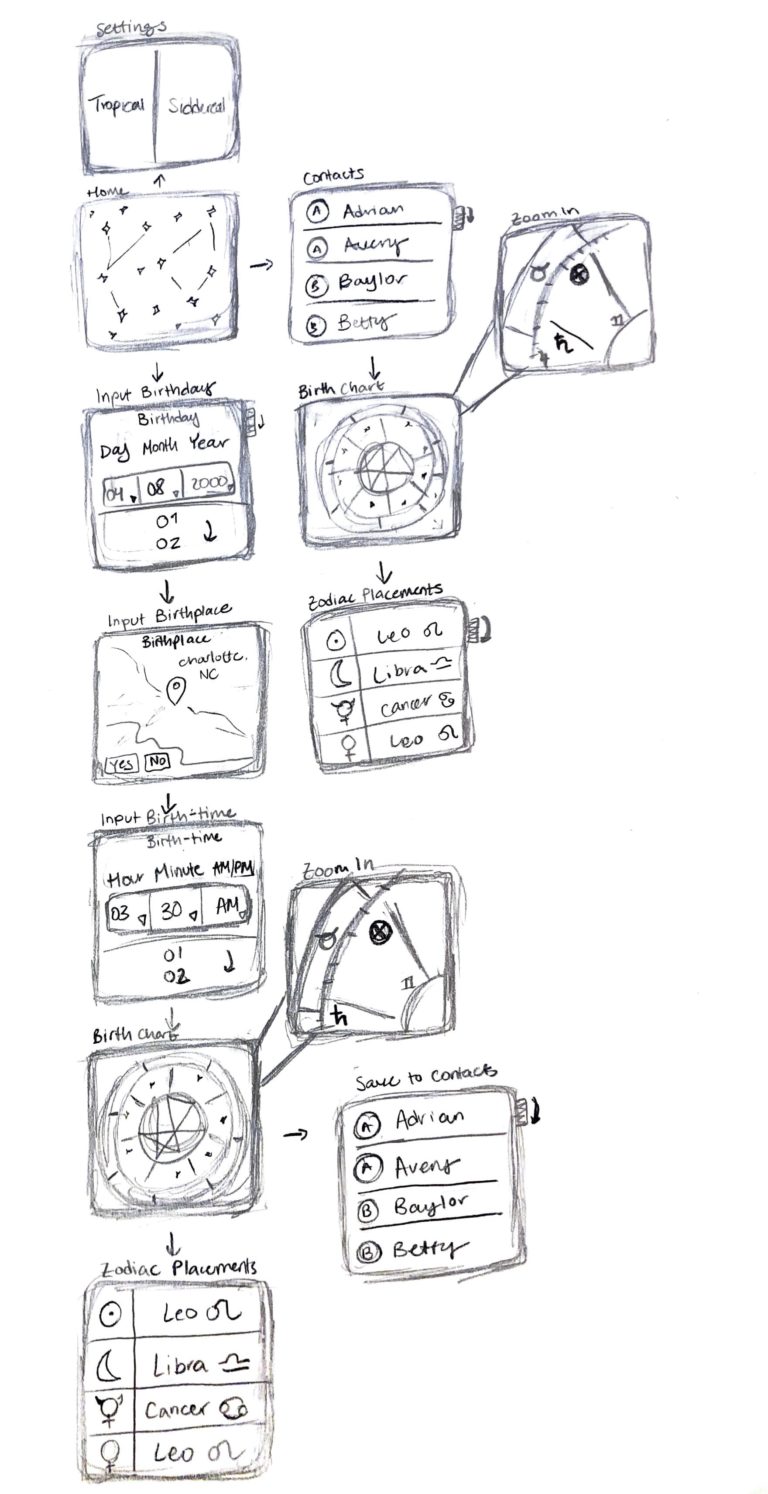 Settings
Tropical
Siddereal
Home
Contacts
A Adrian
A Avery
B Baylor
B Betty
Zoom In
♉ ⊗
♊
♄
Input Birthday
Birthday
Day Month Year
04 08 2000
01
02
Birth Chart
Input Birthplace
Birthplace
Charlotte,
NC
Yes No
Zodiac Placements
☉ Leo ♌
☾ Libra ♎
☿ Cancer ♋
♀ Leo ♌
Input Birth-time
Birth-time
Hour Minute AM/PM
03 30 AM
01
02
Zoom In
♉ ⊗
♊
♄
Birth Chart
Save to Contacts
A Adrian
A Avery
B Baylor
B Betty
Zodiac Placements
☉ Leo ♌
☾ Libra ♎
☿ Cancer ♋
♀ Leo ♌